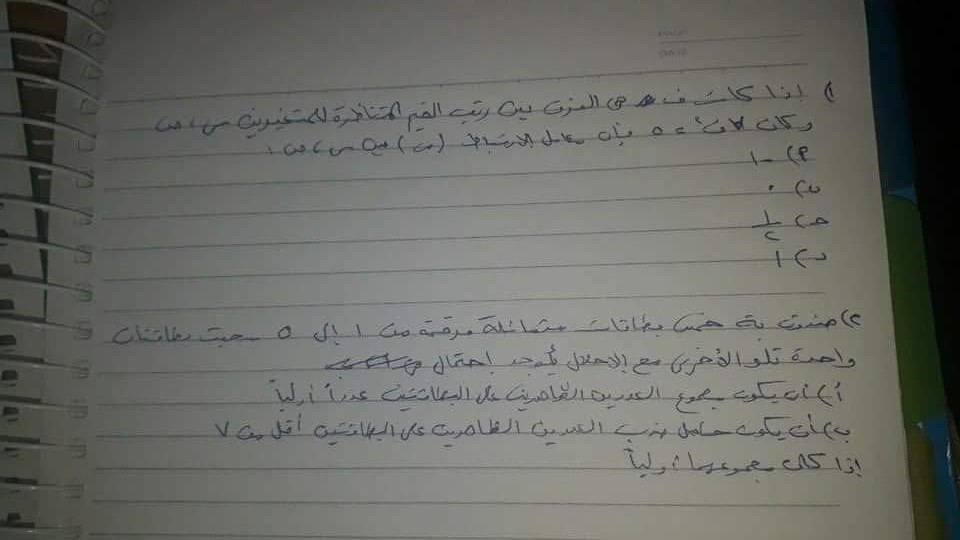 ١) إذا كانت ف هى الفرق بين رتب القيم المتناظرة للمتغيرين س ، ص
وكان ف٢ = ٥ فإن معامل الارتباط (ر) بين س ، ص :
٩) -١
ب) ٠
ج) ١/٢
د) ١
٢) صندوق به خمس بطاقات متماثلة مرقمة من ١ إلى ٥ سحبت بطاقتان
واحدة تلو الأخرى مع الإحلال أوجد احتمال
أ) أن يكون مجموع العددين الظاهرين على البطاقتين عدداً أولياً
ب) أن يكون حاصل ضرب العددين الظاهرين على البطاقتين أقل من ٧
إذا كان مجموعهما أولياً